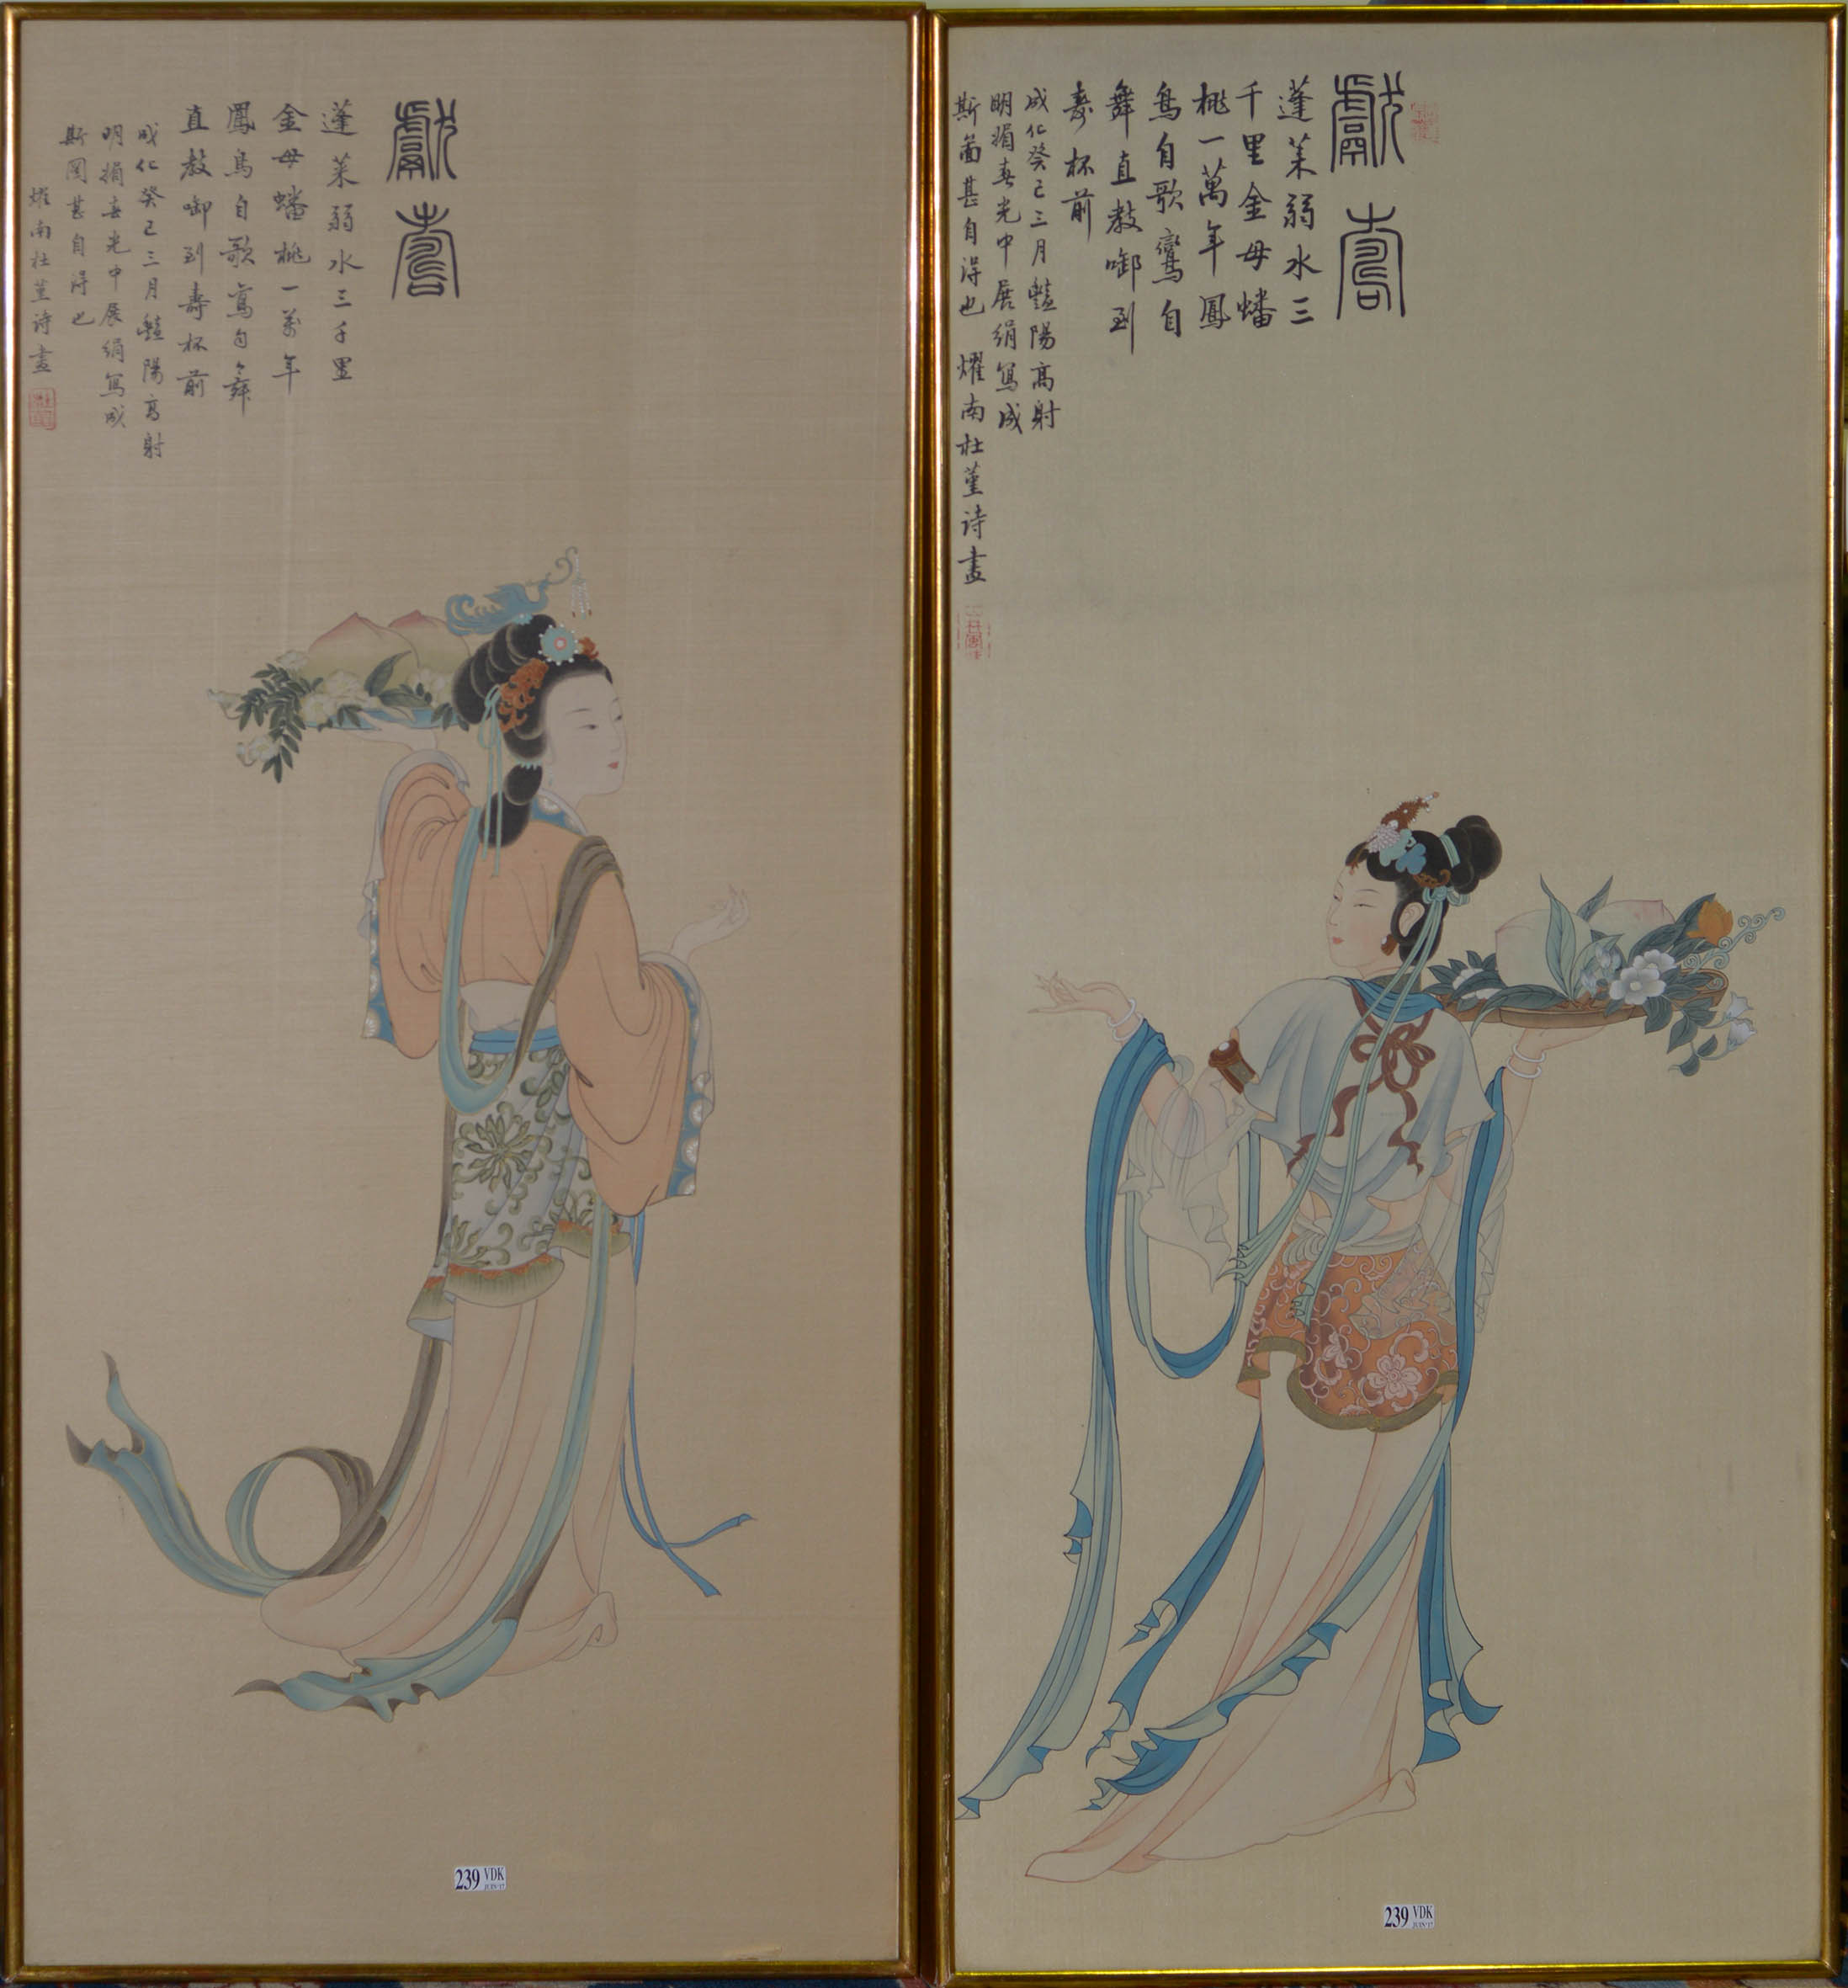 獻壽
蓬萊弱水三千里
金母蟠桃一萬年
鳳鳥自歌鸞自舞
直教啣到壽杯前
成化癸巳三月豔陽高射
明媚春光中展絹寫成
斯圖甚自得也
耀南杜堇诗畫
239 VDK
JUIN'17
獻壽
蓬萊弱水三
千里金母蟠
桃一萬年鳳
鳥自歌鸞自
舞直教啣到
壽杯前
成化癸巳三月豔陽高射
明媚春光中展绢寫成
斯啚甚自得也 耀南杜堇诗畫
239 VDK
JUIN'17